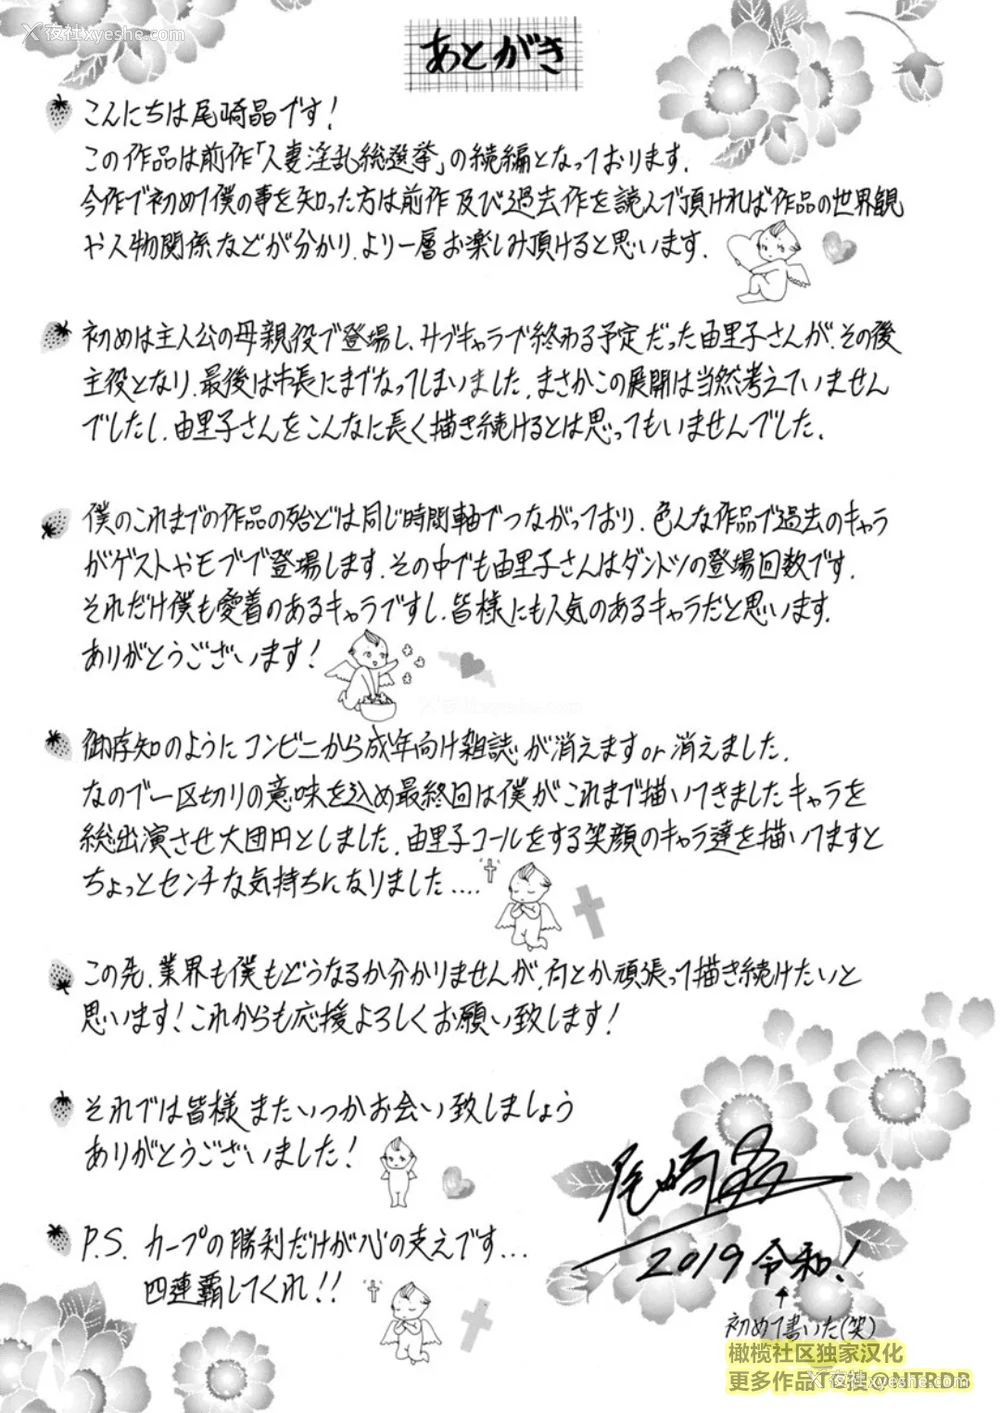 夜社xyeshe.com
夜社xyeshe.com
あとがき
こんにちは尾崎晶です！
この作品は前作「人妻淫乱総選挙」の続編となっております.
今作で初めて僕の事を知った方は前作及び過去作を読んで頂ければ作品の世界観
や人物関係などが分かり.より一層お楽しみ頂けると思います.
初めは主人公の母親役で登場し、サブキャラで終わる予定だった由里子さんが.その後
主役となり.最後は市長にまでなってしまいました.まさかこの展開は当然考えていません
でしたし.由里子さんをこんなに長く描き続けるとは思ってもいませんでした.
僕のこれまでの作品の殆どは同じ時間軸でつながっており.色んな作品で過去のキャラ
がゲストやモブで登場します.その中でも由里子さんはダントツの登場回数です.
それだけ僕も愛着のあるキャラですし.皆様にも人気のあるキャラだと思います.
ありがとうございます！
夜社xyeshe.com
御存知のようにコンビニから成年向け雑誌が消えますor消えました.
なので一区切りの意味を込め最終回は僕がこれまで描いてきましたキャラを
総出演させ大団円としました.由里子コールをする笑顔のキャラ達を描いてますと
ちょっとセンチな気持ちになりました....
この先.業界も僕もどうなるか分かりませんが.何とか頑張って描き続けたいと
思います！これからも応援よろしくお願い致します！
それでは皆様またいつかお会い致しましょう
ありがとうございました！
尾崎晶
2019令和！
初めて書いた(笑)
P.S. カープの勝利だけが心の支えです...
四連覇してくれ！！
橄榄社区独家汉化
更多作品TG搜@NTRDB
夜社xyeshe.com